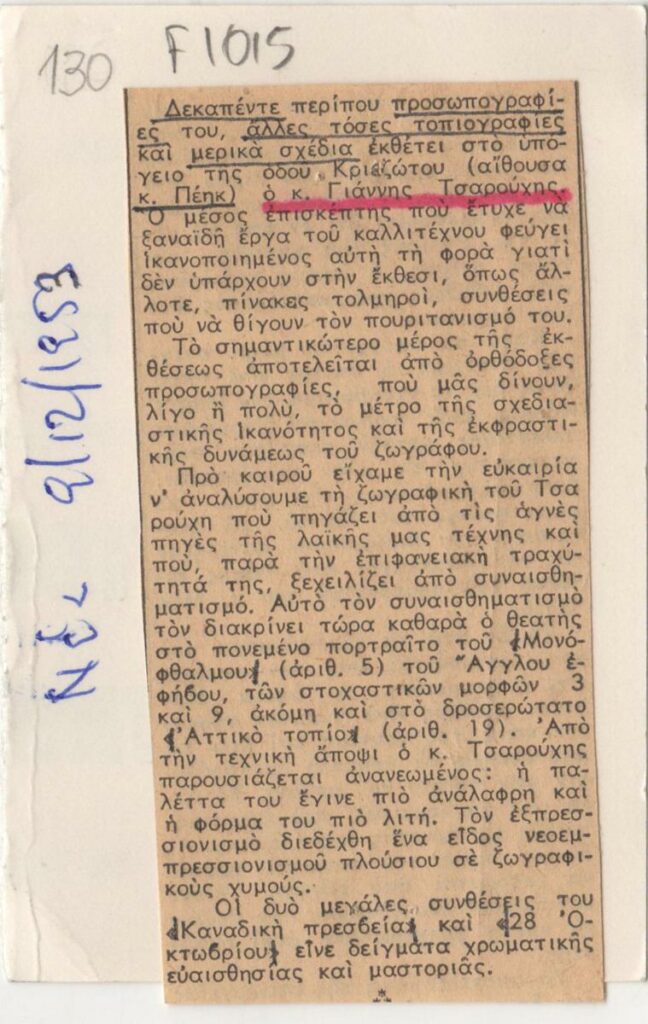 130 F1015
Νέα 9/12/1953
Δεκαπέντε περίπου προσωπογραφί-
ες του, ἄλλες τόσες τοπιογραφίες
καὶ μερικὰ σχέδια ἐκθέτει στὸ ὑπό-
γειο τῆς ὁδοῦ Κριεζώτου (αἴθουσα
κ. Πέηκ) ὁ κ. Γιάννης Τσαρούχης.
Ὁ μέσος ἐπισκέπτης ποὺ ἔτυχε νὰ
ξαναϊδῆ ἔργα τοῦ καλλιτέχνου φεύγει
ἱκανοποιημένος αὐτὴ τὴ φορὰ γιατὶ
δὲν ὑπάρχουν στὴν ἔκθεσι, ὅπως ἄλ-
λοτε, πίνακες τολμηροί, συνθέσεις
ποὺ νὰ θίγουν τὸν πουριτανισμό του.
Τὸ σημαντικώτερο μέρος τῆς ἐκ-
θέσεως ἀποτελεῖται ἀπὸ ὀρθόδοξες
προσωπογραφίες, ποὺ μᾶς δίνουν,
λίγο ἢ πολύ, τὸ μέτρο τῆς σχεδια-
στικῆς ἱκανότητος καὶ τῆς ἐκφραστι-
κῆς δυνάμεως τοῦ ζωγράφου.
Πρὸ καιροῦ εἴχαμε τὴν εὐκαιρία
ν' ἀναλύσουμε τὴ ζωγραφικὴ τοῦ Τσα
ρούχη ποὺ πηγάζει ἀπὸ τὶς ἁγνὲς
πηγὲς τῆς λαϊκῆς μας τέχνης καὶ
πού, παρὰ τὴν ἐπιφανειακὴ τραχύ-
τητά της, ξεχειλίζει ἀπὸ συναισθη-
ματισμό. Αὐτὸ τὸν συναισθηματισμὸ
τὸν διακρίνει τώρα καθαρὰ ὁ θεατὴς
στὸ πονεμένο πορτραῖτο τοῦ «Μονό-
φθαλμου» (ἀριθ. 5) τοῦ Ἄγγλου ἐ-
φήβου, τῶν στοχαστικῶν μορφῶν 3
καὶ 9, ἀκόμη καὶ στὸ δροσερώτατο
«Ἀττικὸ τοπίο» (ἀριθ. 19). Ἀπὸ
τὴν τεχνικὴ ἄποψι ὁ κ. Τσαρούχης
παρουσιάζεται ἀνανεωμένος: ἡ πα-
λέττα του ἔγινε πιὸ ἀνάλαφρη καὶ
ἡ φόρμα του πιὸ λιτή. Τὸν ἐξπρεσ-
σιονισμὸ διεδέχθη ἕνα εἶδος νεοεμ-
πρεσσιονισμοῦ πλούσιου σὲ ζωγραφι-
κοὺς χυμούς.
Οἱ δυὸ μεγάλες συνθέσεις του
«Καναδικὴ πρεσβεία» καὶ «28 Ὀ-
κτωβρίου» εἶνε δείγματα χρωματικῆς
εὐαισθησίας καὶ μαστοριᾶς.